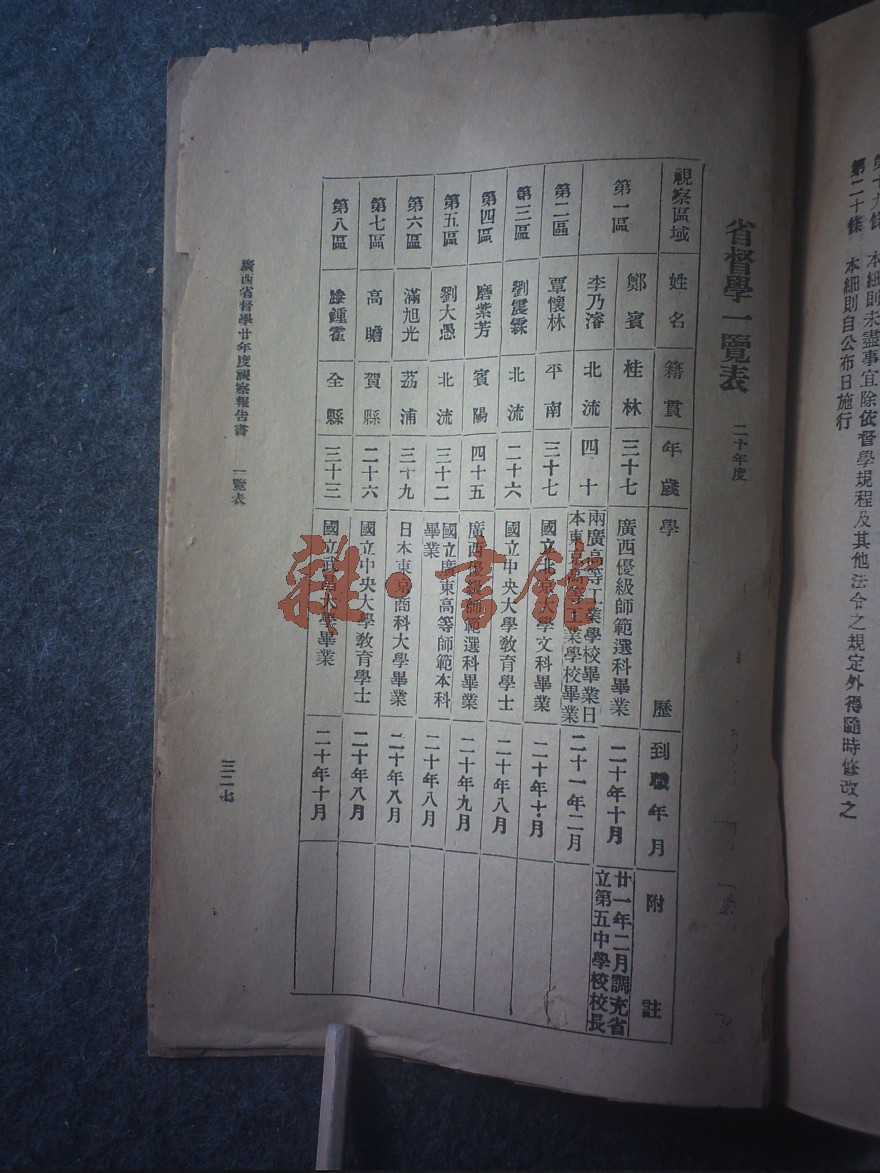 第二十條　本細則自公布日施行
本細則未盡事宜除依督學規程及其他法令之規定外得隨時修改之
省督學一覽表　二十年度
視察區域　姓名　籍貫　年歲　學歷　到職年月　附註
第一區　鄭賓　桂林　三十七　廣西優級師範選科畢業　二十年十月　廿一年二月調充省立第五中學校校長
李乃濬　北流　四十　兩廣高等工業學校畢業日本東京高等工業學校畢業　二十一年二月
第二區　覃懷林　平南　三十七　國立北京大學文科畢業　二十年十月
第三區　劉震霖　北流　二十六　國立中央大學教育學士　二十年八月
第四區　磨紫芳　賓陽　四十五　廣西優級師範選科畢業　二十年九月
第五區　劉大愚　北流　三十二　國立廣東高等師範本科畢業　二十年八月
第六區　滿旭光　荔浦　三十九　日本東京商科大學畢業　二十年八月
第七區　高瞻　賀縣　二十六　國立中央大學教育學士　二十年八月
第八區　滕鍾霍　全縣　三十三　國立武昌大學畢業　二十年十月
廣西省督學廿年度視察報告書　一覽表　三二七
雜·書館